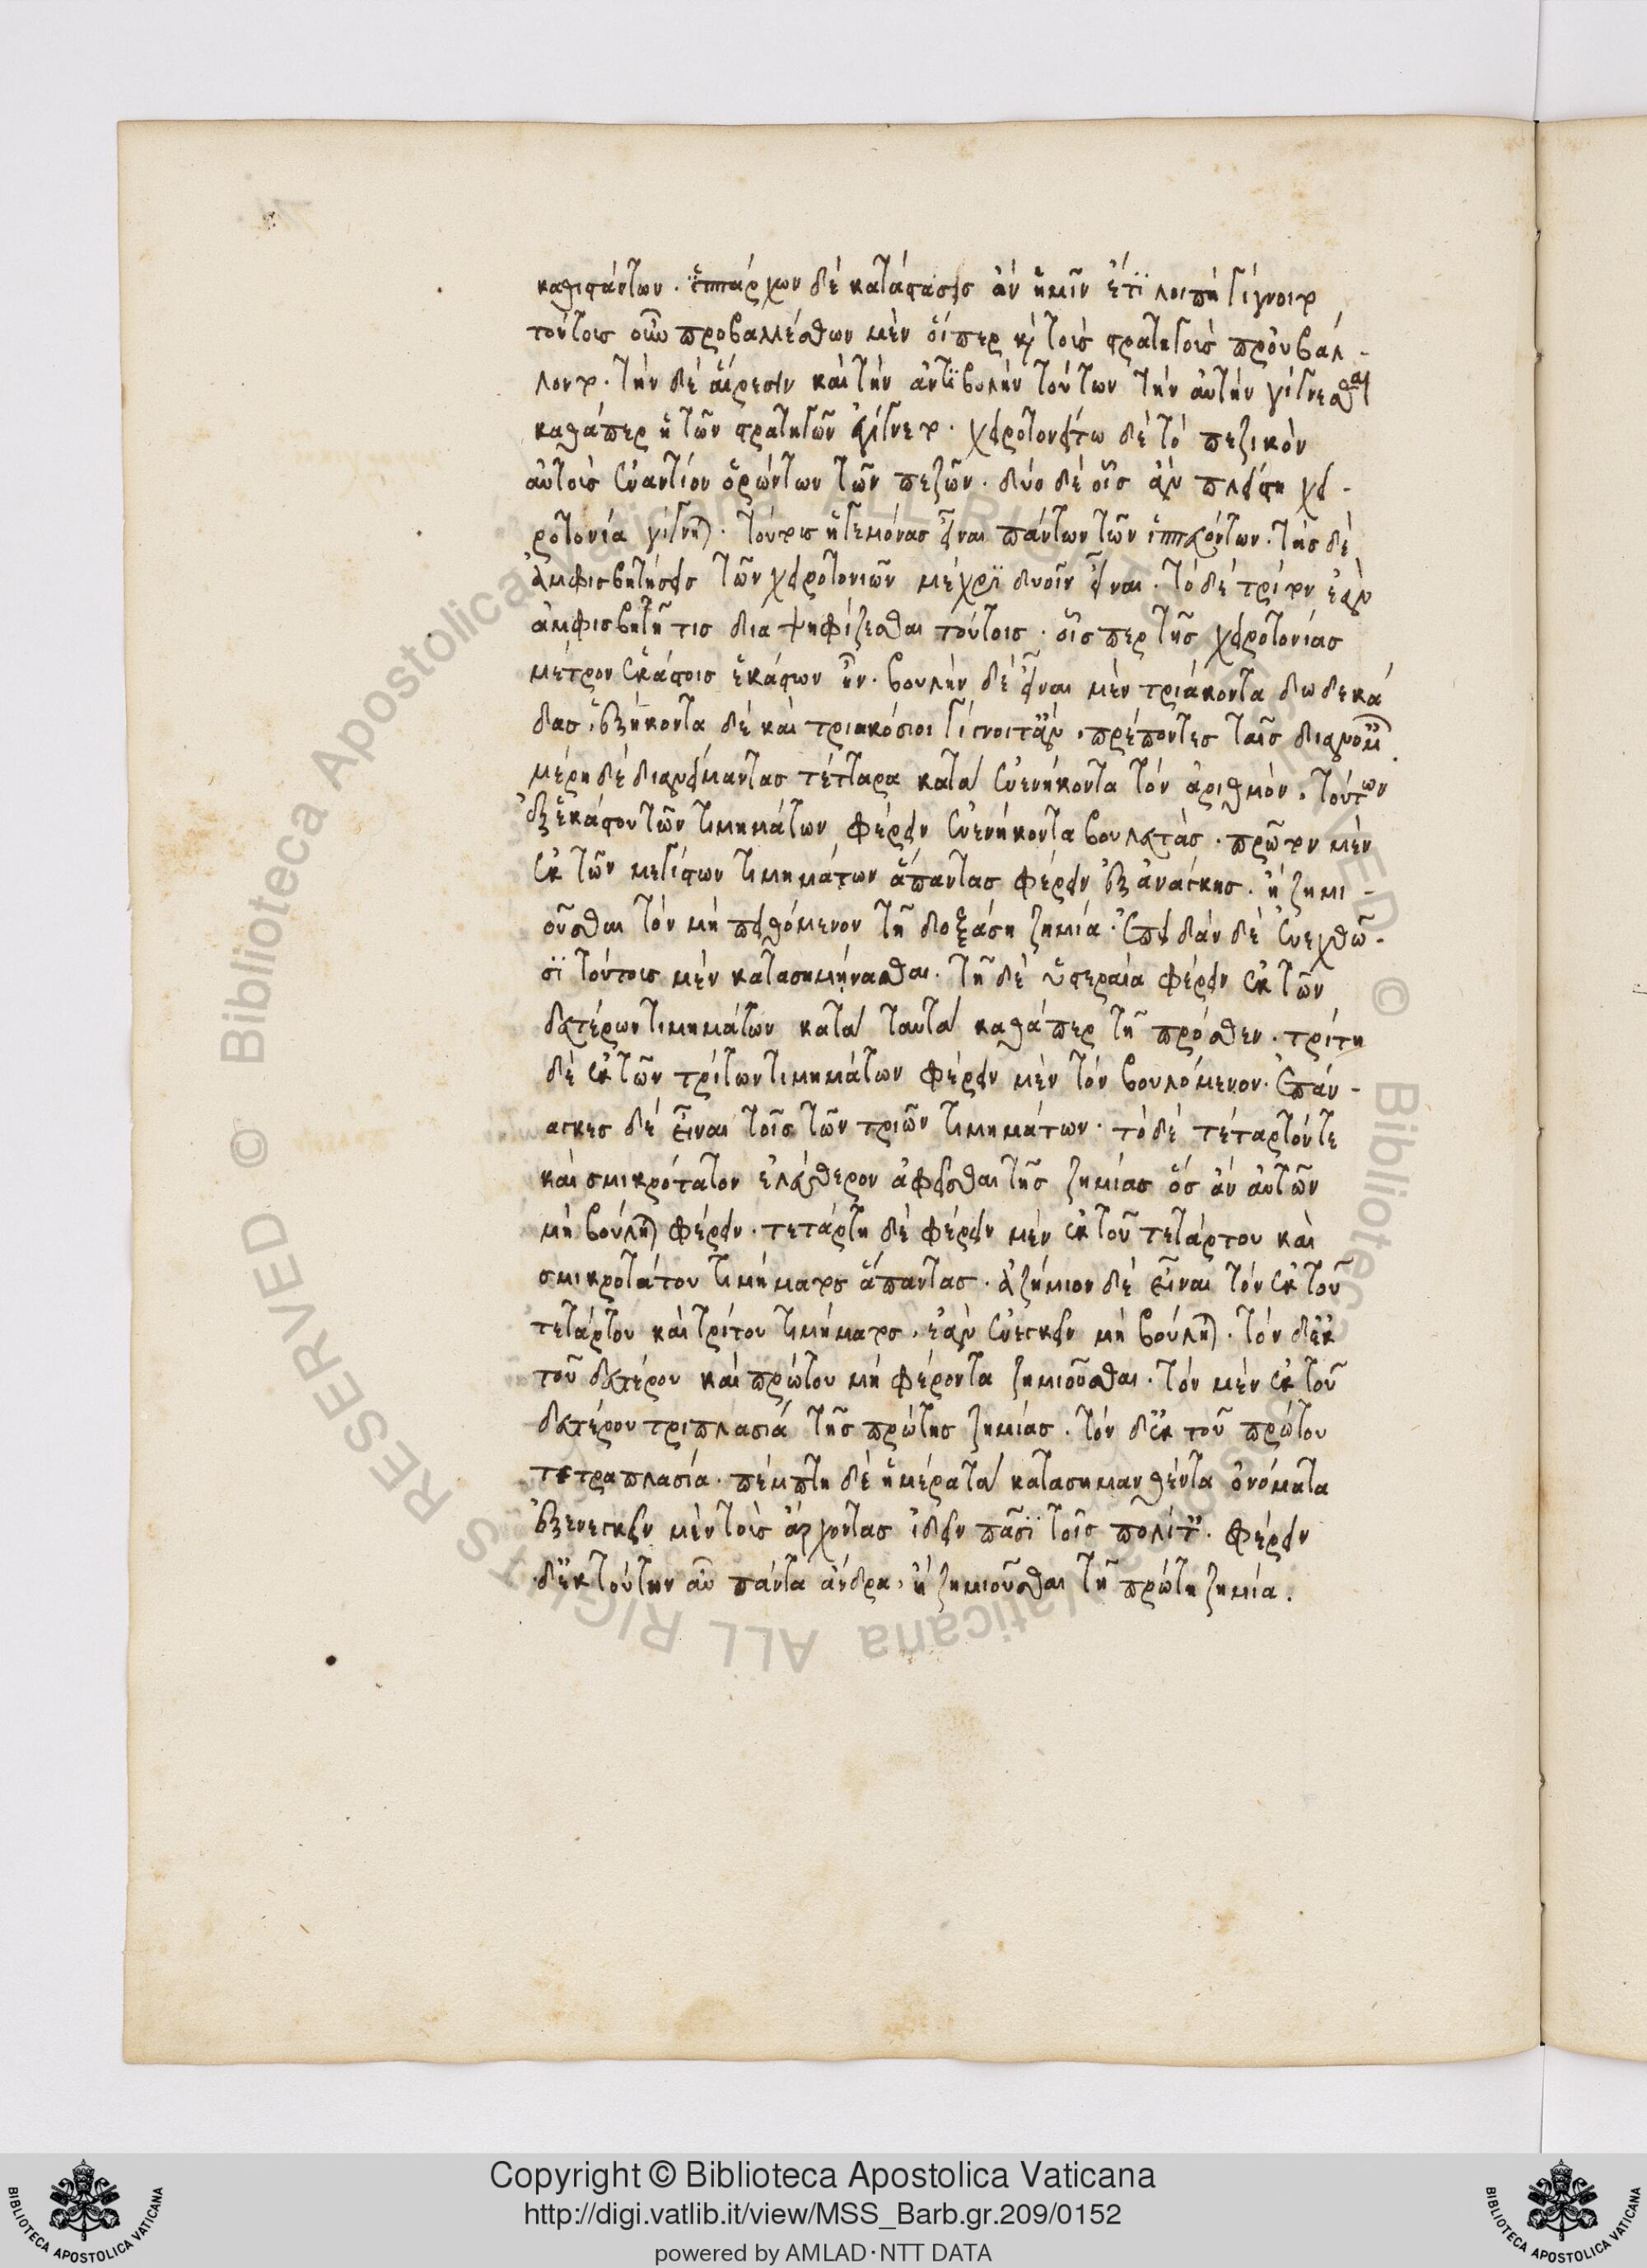 καθιστάντων. ἱππάρχων δὲ κατάστασις ἂν ἡμῖν ἔτι λοιπὴ γίγνοιτο
τούτοις οὖν προβαλλέσθων μὲν οἵπερ καὶ τοὺς στρατηγοὺς προὐβάλ-
λοντο. τὴν δὲ αἵρεσιν καὶ τὴν ἀντιβολὴν τούτων τὴν αὐτὴν γίγνεσθαι
καθάπερ ἡ τῶν στρατηγῶν ἐγίγνετο. χειροτονείτω δὲ τὸ πεζικὸν
αὐτοὺς ἐναντίον ὁρώντων τῶν πεζῶν. δύο δὲ οἷς ἂν πλείστη χει-
ροτονία γίγνηται. τούτους ἡγεμόνας εἶναι πάντων τῶν ἱππευόντων. τῆς δὲ
ἀμφισβητήσεις τῶν χειροτονιῶν μέχρι δυοῖν εἶναι. τὸ δὲ τρίτον ἐὰν
ἀμφισβητῇ τις διαψηφίζεσθαι τούτοις. οἷσπερ τῆς χειροτονίας
μέτρον ἑκάστοις ἑκάστων ἦν. βουλὴν δὲ εἶναι μὲν τριάκοντα δωδεκά
δας. ἑξήκοντα δὲ καὶ τριακόσιοι γίγνοιντ' ἂν. πρέποντες ταῖς διανομαῖς.
μέρη δὲ διανείμαντας τέτταρα κατὰ ἐνενήκοντα τὸν ἀριθμὸν. τούτων
ἐξ ἑκάστου τῶν τιμημάτων φέρειν ἐνενήκοντα βουλευτάς. πρῶτον μὲν
ἐκ τῶν μεγίστων τιμημάτων ἅπαντας φέρειν ἐξ ἀνάγκης. ἢ ζημι-
οῦσθαι τὸν μὴ πειθόμενον τῇ δοξάσῃ ζημίᾳ. ἐπειδὰν δὲ ἐνεχθῶ-
σι τούτους μὲν κατασημήνασθαι. τῇ δὲ ὑστεραίᾳ φέρειν ἐκ τῶν
δευτέρων τιμημάτων κατὰ ταὐτὰ καθάπερ τῇ πρόσθεν. τρίτῃ
δὲ ἐκ τῶν τρίτων τιμημάτων φέρειν μὲν τὸν βουλόμενον. ἐπάν-
αγκες δὲ εἶναι τοῖς τῶν τριῶν τιμημάτων. τὸ δὲ τέταρτόν τε
καὶ σμικρότατον ἐλεύθερον ἀφεῖσθαι τῆς ζημίας ὃς ἂν αὐτῶν
μὴ βούληται φέρειν. τετάρτῃ δὲ φέρειν μὲν ἐκ τοῦ τετάρτου καὶ
σμικροτάτου τιμήματος ἅπαντας. ἀζήμιον δὲ εἶναι τὸν ἐκ τοῦ
τετάρτου καὶ τρίτου τιμήματος. ἐὰν ἐνεγκεῖν μὴ βούληται. τὸν δ' ἐκ
τοῦ δευτέρου καὶ πρώτου μὴ φέροντα ζημιοῦσθαι. τὸν μὲν ἐκ τοῦ
δευτέρου τριπλασίᾳ τῆς πρώτης ζημίας. τὸν δ' ἐκ τοῦ πρώτου
τετραπλασίᾳ. πέμπτῃ δὲ ἡμέρᾳ τὰ κατασημανθέντα ὀνόματα
ἐξενεγκεῖν μὲν τοὺς ἄρχοντας ἰδεῖν πᾶσι τοῖς πολίταις. φέρειν
δ' ἐκ τούτων αὖ πάντα ἄνδρα. ἢ ζημιοῦσθαι τῇ πρώτῃ ζημίᾳ.
Copyright © Biblioteca Apostolica Vaticana
http://digi.vatlib.it/view/MSS_Barb.gr.209/0152
powered by AMLAD·NTT DATA
BIBLIOTECA APOSTOLICA VATICANA
BIBLIOTECA APOSTOLICA VATICANA
© Biblioteca Apostolica Vaticana ALL RIGHTS RESERVED
© Biblioteca Apostolica Vaticana ALL RIGHTS RESERVED